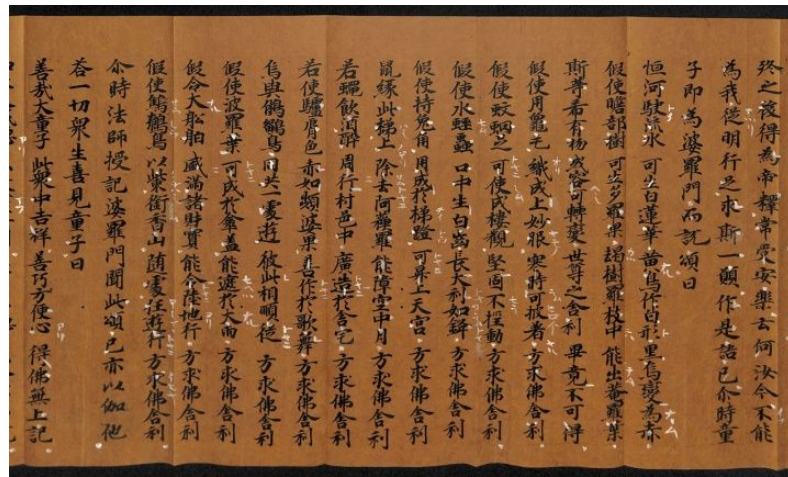 終之後得為帝釋常受安樂云何汝今不能
為我從明行足求斯一願作是語已尒時童
子即為婆羅門而說頌曰
恒河駛流水 可生白蓮華 黃鳥作白形 黑烏變為赤
假使瞻部樹 可生多羅果 朅樹羅枝中 能出菴羅葉
斯等希有物 或容可轉變 世尊之舍利 畢竟不可得
假使用龜毛 織成上妙服 寒時可披著 方求佛舍利
假使蚊蚋足 可使成樓觀 堅固不搖動 方求佛舍利
假使水蛭蟲 口中生白齒 長大利如鋒 方求佛舍利
假使持兔角 用成於梯蹬 可昇上天宮 方求佛舍利
鼠緣此梯上 除去阿蘇羅 能障空中月 方求佛舍利
若蠅飲酒醉 周行村邑中 廣造於舍宅 方求佛舍利
若使驢脣色 赤如頻婆果 善作於歌舞 方求佛舍利
烏與鵂鶹鳥 同共一處遊 彼此相順從 方求佛舍利
假使波羅葉 可成於傘蓋 能遮於大雨 方求佛舍利
假令大船舶 盛滿諸財寶 能令陸地行 方求佛舍利
假使鷦鷯鳥 以嘴銜香山 隨處任遊行 方求佛舍利
尒時法師授記婆羅門聞此頌已亦以伽他
荅一切衆生喜見童子曰
善哉大童子 此衆中吉祥 善巧方便心 得佛無上記